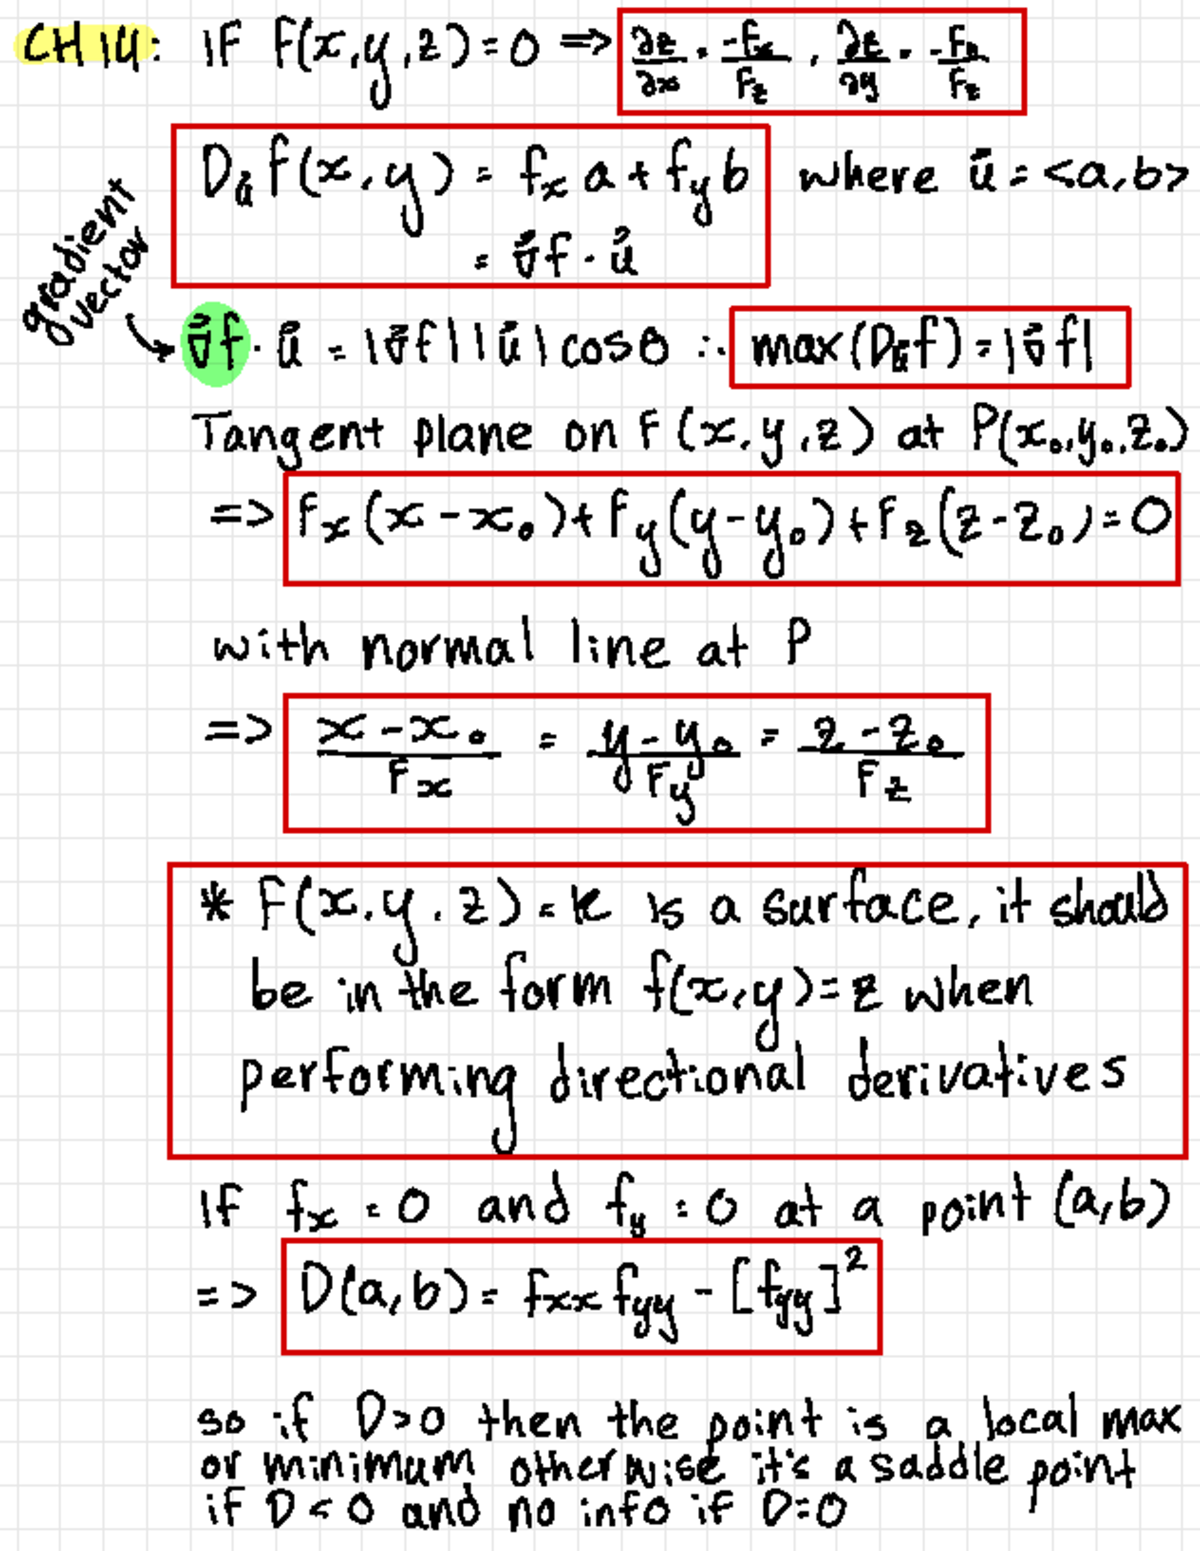 CH 14: IF F(x,y,z)=0 => ∂z/∂x = -Fx/Fz, ∂z/∂y = -Fy/Fz
Dᵤ⃗ f(x,y) = fₓ a + f_y b where u⃗ = <a,b>
= ∇⃗f · u⃗
gradient
vector
∇⃗f · u⃗ = |∇⃗f||u⃗|cosθ ∴ max(Dᵤ⃗f) = |∇⃗f|
Tangent plane on F(x,y,z) at P(x₀,y₀,z₀)
=> Fₓ(x-x₀)+F_y(y-y₀)+F_z(z-z₀)=0
with normal line at P
=> x-x₀/Fₓ = y-y₀/F_y = z-z₀/F_z
* F(x,y,z)=k is a surface, it should
be in the form f(x,y)=z when
performing directional derivatives
IF fₓ = 0 and f_y = 0 at a point (a,b)
=> D(a,b) = fₓₓ f_yy - [f_yy]²
so if D>0 then the point is a local max
or minimum otherwise it's a saddle point
if D<0 and no info if D=0